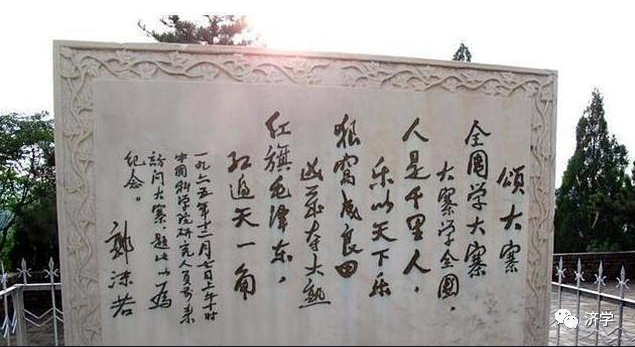 頌大寨
全国学大寨
大寨学全国，
人是千里人，
乐以天下乐
狼窝成良田
凶岁夺大熟
红旗毛泽东，
红过天一角
一九六五年十二月七日上午十时
中国科学院研究人员来
访问大寨，题此以为
纪念。
郭沫若
济学